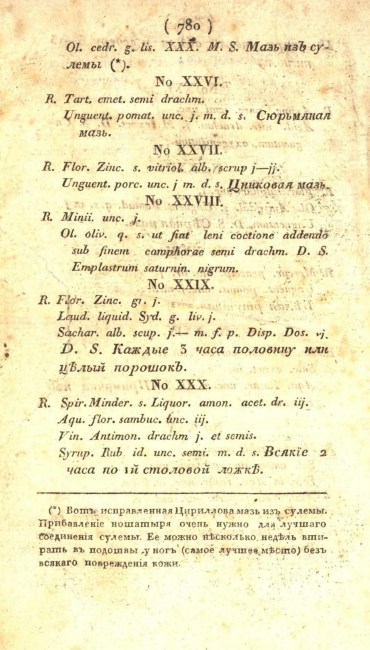 ( 780 )
Ol. cedr. g. lis. XXX. M. S. Мазь изъ су-
лемы (*).
No XXVI.
R. Tart. emet. semi drachm.
Unguent. pomat. unc. j. m. d. s. Сюрьмяная
мазь.
No XXVII.
R. Flor. Zinc. s. vitriol. alb. scrup j—jj.
Unguent. porc. unc. j m. d. s. Цинковая мазь.
No XXVIII.
R. Minii. unc. j.
Ol. oliv. q. s. ut fiat leni coctione addendo
sub finem camphorae semi drachm. D. S.
Emplastrum saturnin. nigrum.
No XXIX.
R. Flor. Zinc. gr. j.
Laud. liquid. Syd. g. liv. j.
Sachar. alb. scup. j.— m. f. p. Disp. Dos. vj
D. S. Каждые 3 часа половину или
цѣлый порошокъ.
No XXX.
R. Spir. Minder. s. Liquor. amon. acet. dr. iij.
Aqu. flor. sambuc. unc. iij.
Vin. Antimon. drachm j. et semis.
Syrup. Rub. id. unc. semi. m. d. s. Всякіе 2
часа по 1й столовой ложкѣ.
(*) Вотъ исправленная Цириллова мазь изъ сулемы.
Прибавленіе ношатыря очень нужно для лучшаго
соединенія сулемы. Ее можно нѣсколько недѣль вти-
рать въ подошвы у ногъ (самое лучшее мѣсто) безъ
всякаго поврежденія кожи.